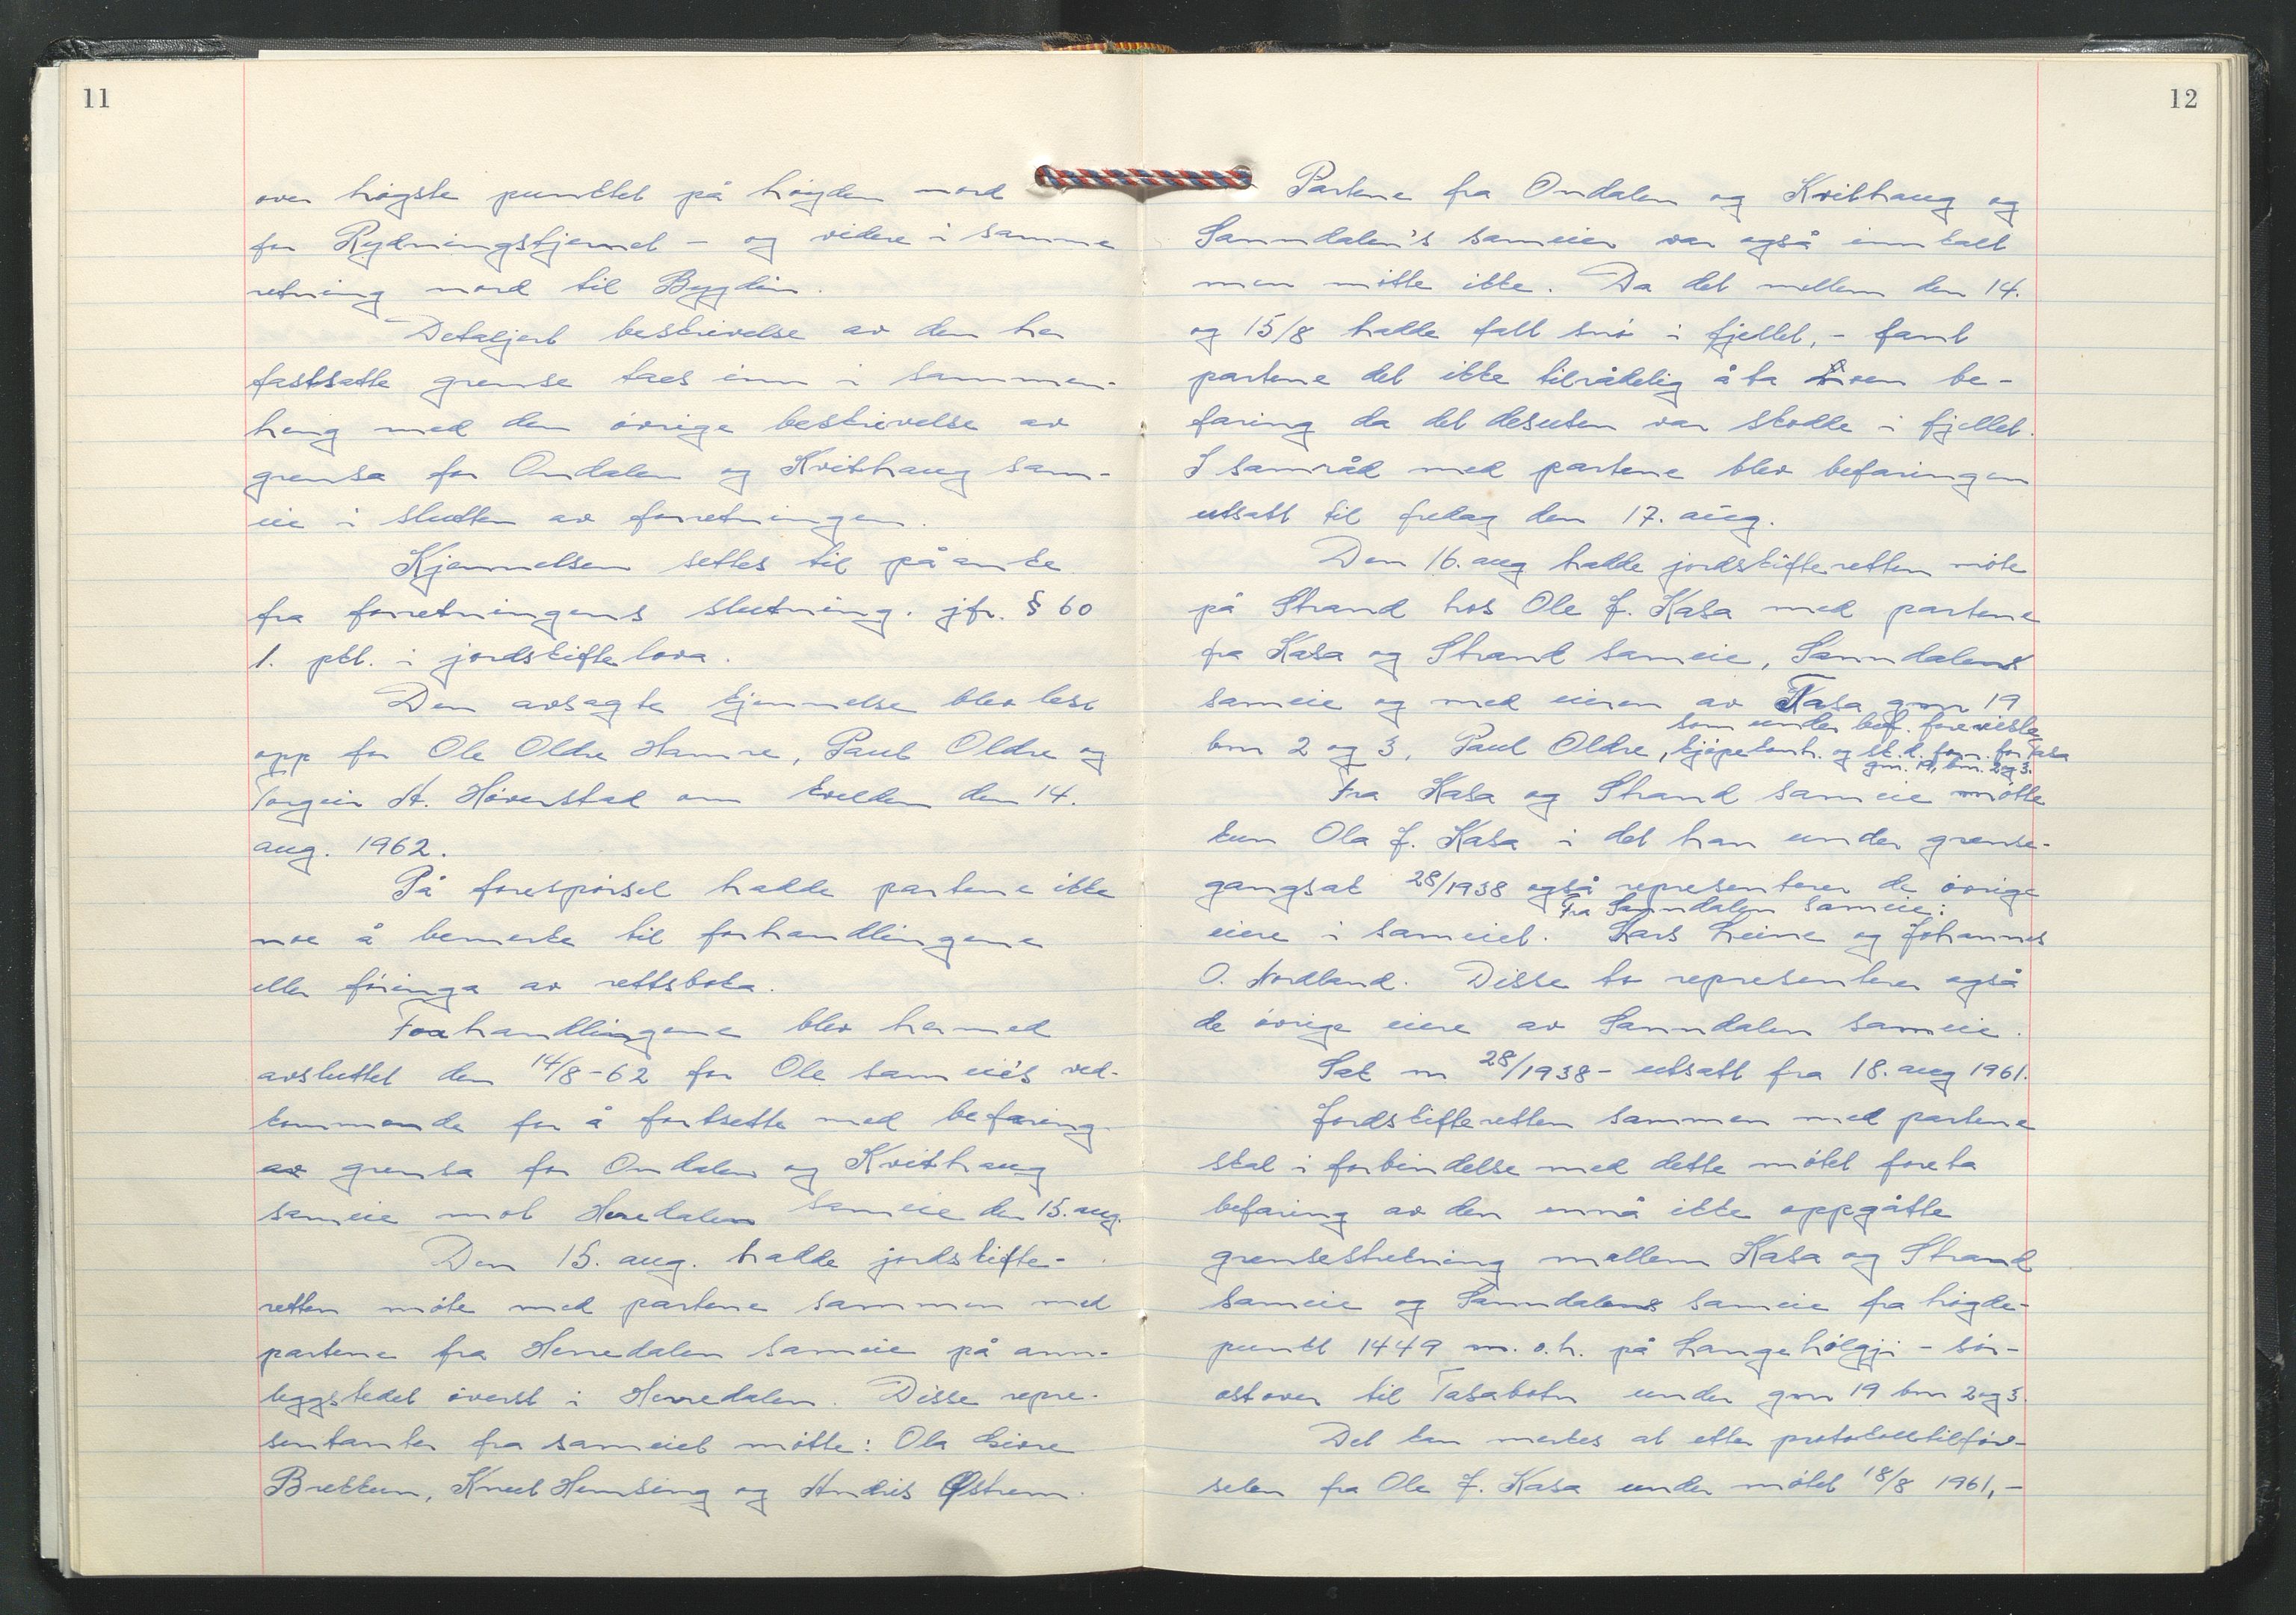 11
over høgste punktet på høgden nord
for Rydningstjernet - og videre i samme
retning nord til Bygdin.
Detaljert beskrivelse av den her
fastsatte grense taes inn i sammen-
heng med den øvrige beskrivelse av
grensa for Ondalen og Kvithaug sam-
eie i slutten av forretningen.
Kjennelsen settes til påanke
fra forretningens slutning. jfr. § 60
1. pkt. i jordskiftelova.
Den avsagte kjennelse blev lest
opp for Ole Oldre Hamre, Paul Oldre og
Torgeir A. Høverstad om kvelden den 14.
aug. 1962.
På forespørsel hadde partene ikke
noe å bemerke til forhandlingene
eller føringa av rettsboka.
Forhandlingene blev hermed
avsluttet den 14/8-62 for Ole sameie's ved-
kommende for å fortsette med befaring
av grensa for Ondalen og Kvithaug
sameie mot Herredalen sameie den 15. aug.
Den 15. aug. hadde jordskifte-
retten møte med partene sammen med
partene fra Herredalen sameie på ann-
leggstedet øverst i Herredalen. Disse repre-
sentanter fra sameiet møtte: Ola
Brekken, Knut Hemsing og Andris Østrem.
12
Partene fra Ondalen og Kvithaug og
Sanndalen's sameier var også innkalt
men møtte ikke. Da det mellem den 14.
og 15/8 hadde falt snø i fjellet, - fant
partene det ikke tilrådelig å ta noen be-
faring da det desuten var skodde i fjellet.
I samråd med partene blev befaringen
utsatt til fredag den 17. aug.
Den 16. aug hadde jordskifteretten møte
på Strand hos Ole J. Kasa med partene
fra Kasa og Strand sameie, Sanndalens
sameie og med eieren av Tasa gnr 19
som under bef. foreviste
bnr 2 og 3, Paul Oldre, kjøpekontr. og sk.d. forr. for Tasa
gnr. 19, bnr. 2 og 3.
Fra Kasa og Strand sameie møtte
kun Ola J. Kasa i det han under grense-
gangsak 28/1938 også representerer de øvrige
Fra Sanndalen sameie:
eiere i sameiet. Lars Leine og Johannes
O. Nordland. Disse to representerer også
de øvrige eiere av Sanndalen sameie.
Sak nr 28/1938 - utsatt fra 18. aug 1961.
Jordskifteretten sammen med partene
skal i forbindelse med dette møtet foreta
befaring av den ennå ikke oppgåtte
grensestrekning mellem Kasa og Strand
sameie og Sanndalens sameie fra høgde-
punkt 1449 m. o. h. på Langehølgji - sør-
østover til Tasabotn under gnr 19 bnr 2 og 3.
Det kan merkes at etter protokolltilfør-
selen fra Ole J. Kasa under møtet 18/8 1961, -